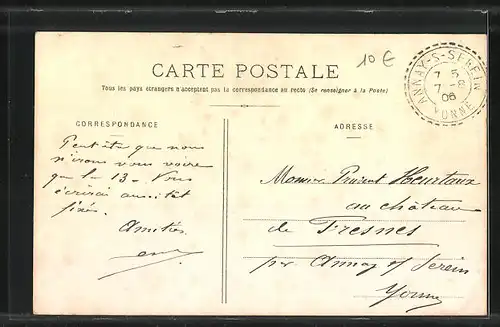 10 €
ANNAY-S-SEREIN
7 5
7 -8
06
YONNE
CARTE POSTALE
Tous les pays étrangers n'acceptent pas la correspondance au recto (Se renseigner à la Poste)
CORRESPONDANCE
ADRESSE
Peut être que nous
n'irons vous voir
que le 13. Vous
écrirai aussitôt
fixés.
Amitiés
Monsieur Heurtaux
au château
de Fresnes
par Annay s/ Serein
Yonne